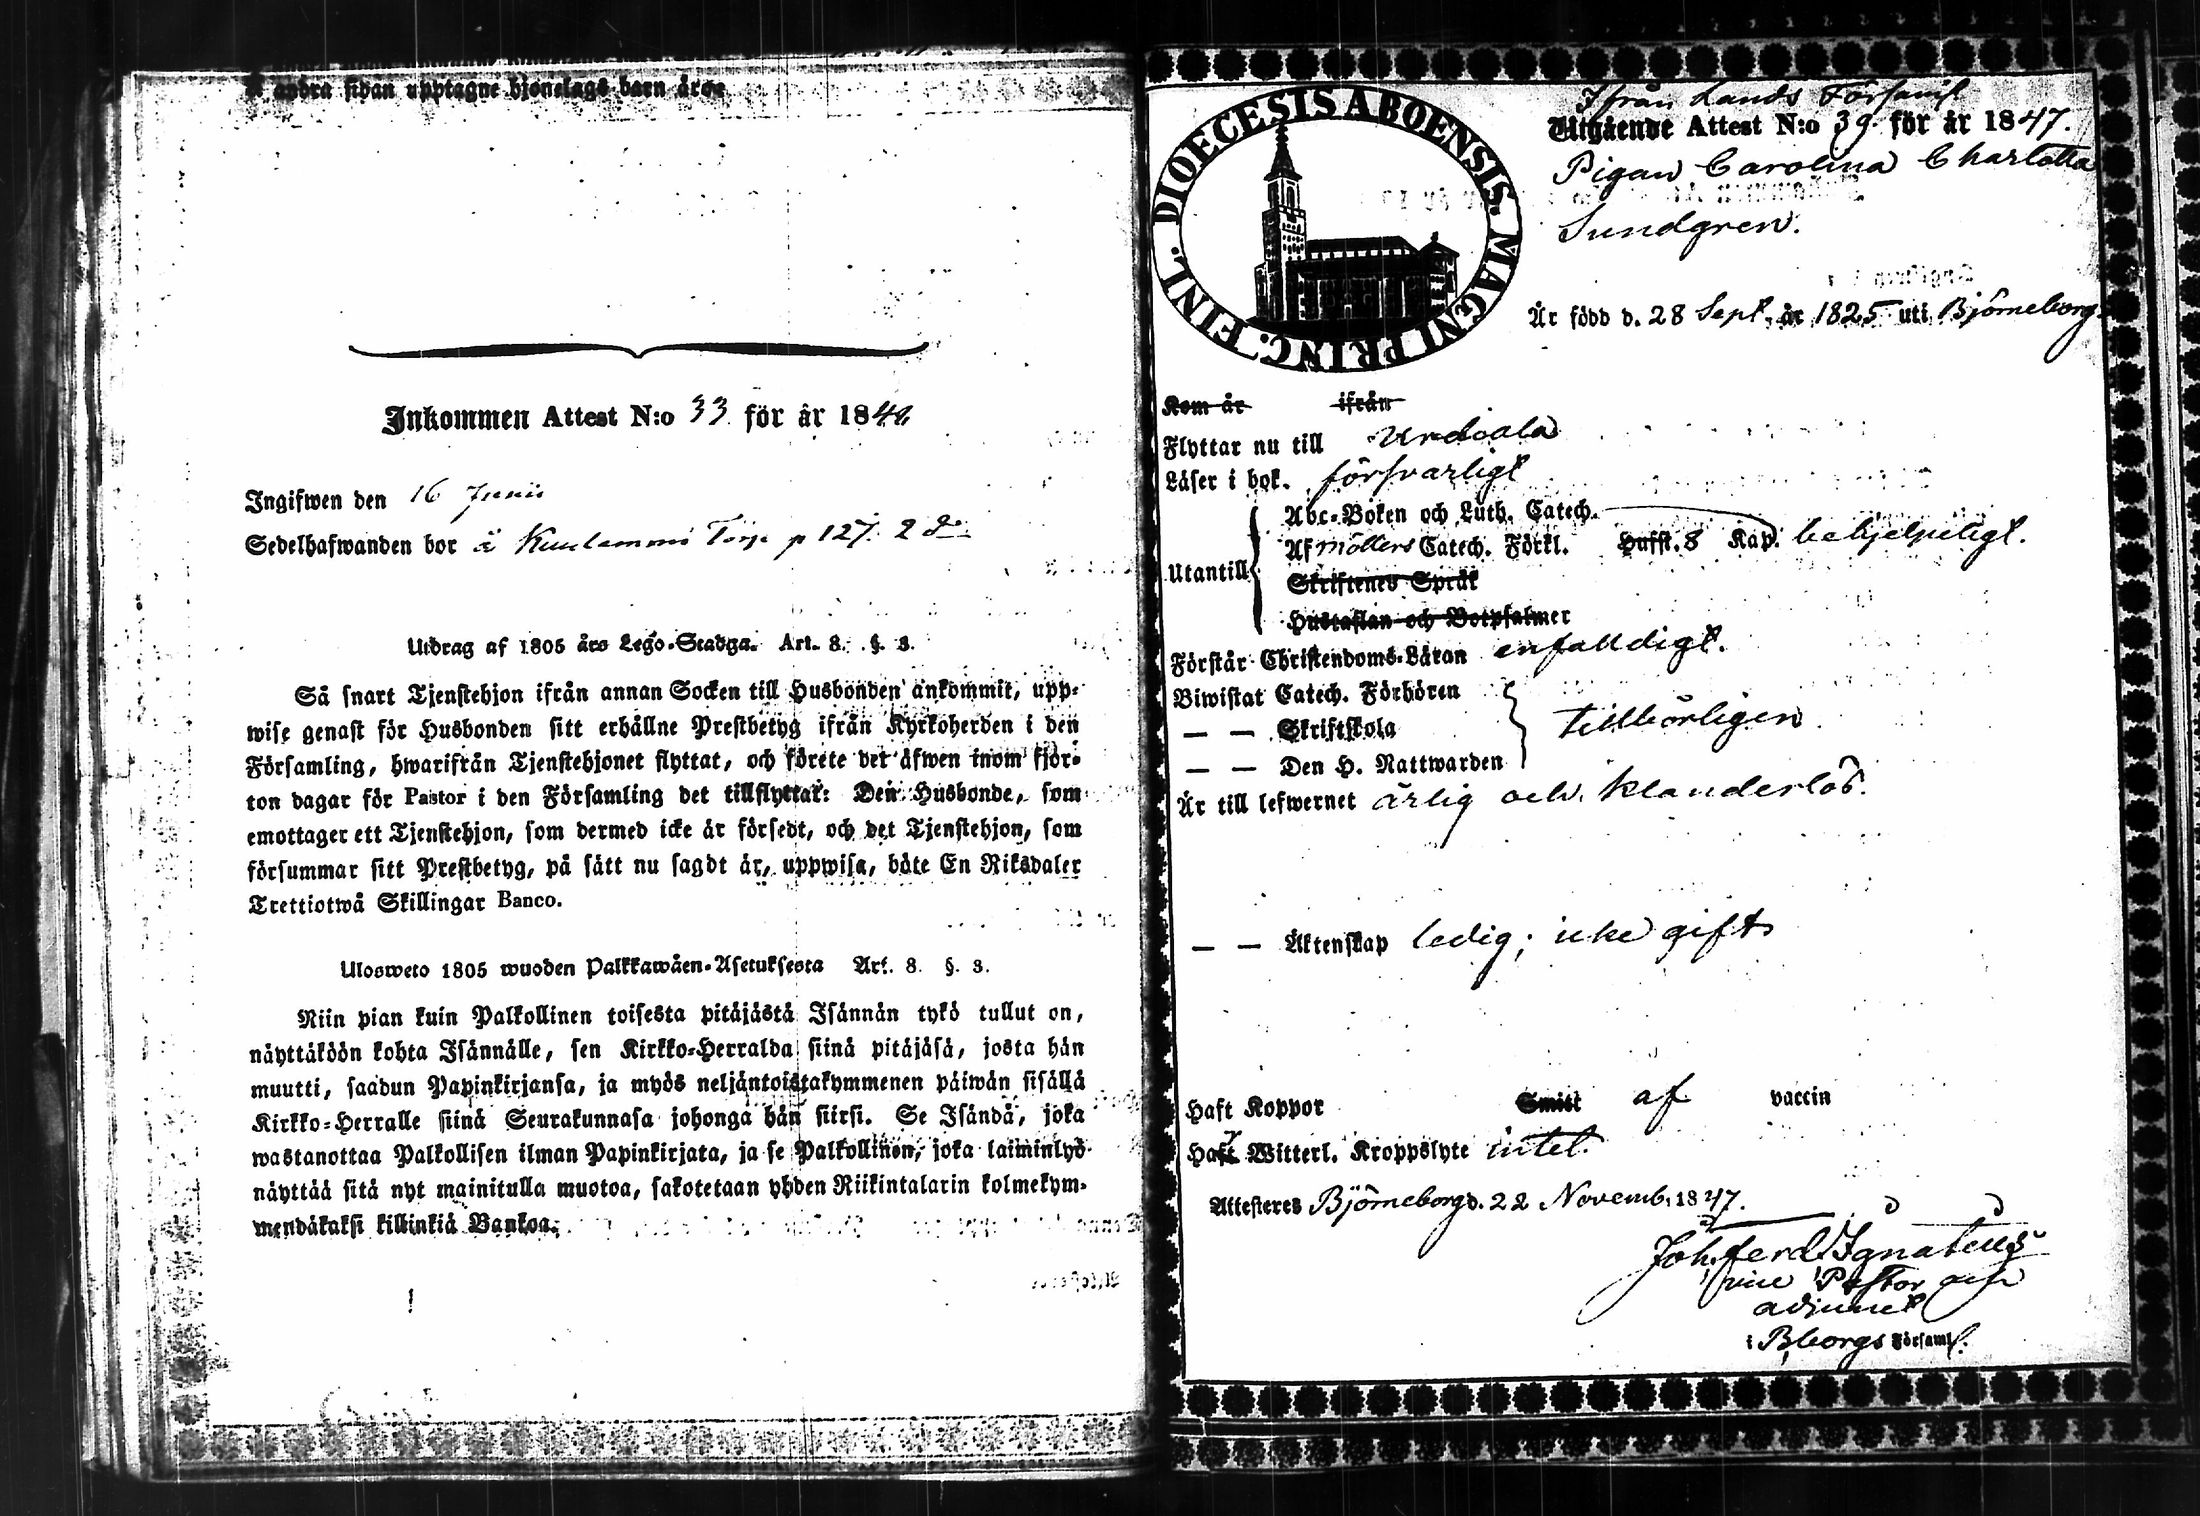 Å andra sidan upptagne hjonelags barn äro:
Inkommen Attest N:o 33 för år 184
Ingifwen den 16 Junii
Sedelhafwanden bor å p 127.
Utdrag af 1805 års Lego-Stadga. Art. 8. §. 3.
Så snart Tjenstehjon ifrån annan Socken till Husbonden ankommit, upp-
wise genast för Husbonden sitt erhållne Prestbetyg ifrån Kyrkoherden i den
Församling, hwarifrån Tjenstehjonet flyttat, och förete det äfwen inom fjor-
ton dagar för Pastor i den Församling det tillflyttat: Den Husbonde, som
emottager ett Tjenstehjon, som dermed icke är försedt, och det Tjenstehjon, som
försummar sitt Prestbetyg, på sätt nu sagdt är, uppwisa, böte En Riksdaler
Trettiotwå Skillingar Banco.
Ulosweto 1805 wuoden Palkkawäen-Asetuksesta Art. 8. §. 3.
Niin pian kuin Palkollinen toisesta pitäjästä Isännän tykö tullut on,
näyttäköön kohta Isännälle, sen Kirkko-Herralda siinä pitäjäsä, josta hän
muutti, saadun Papinkirjansa, ja myös neljäntoistakymmenen päiwän sisällä
Kirkko-Herralle siinä Seurakunnasa johonga hän siirsi. Se Isändä, joka
wastanottaa Palkollisen ilman Papinkirjata, ja se Palkollinen, joka laiminlyö
näyttää sitä nyt mainitulla muotoa, sakotetaan yhden Riikintalarin kolmekym-
mendäkaksi killinkiä Bankoa.
DIOECESIS ABOENSIS. MAGNI PRINC. FINL.
Ifrån Lands Församl
Utgående Attest N:o 39. för år 1847.
Pigan Carolina Charlotta
Sundgren.
Är född d. 28 Sept. år 1825 uti Björneborg
Kom år ifrån
Flyttar nu till Urdiala
Läser i bok. försvarligt
Abc-Boken och Luth. Catech.
Af Möllers Catech. Förkl. Hufst. 8 Kap. behjelpeligt.
Utantill
Skriftenes Språk
Hustaflan och Botpsalmer
Förstår Christendoms-Läran enfalldigt.
Biwistat Catech. Förhören
— — Skriftskola tillbörligen
— — Den H. Nattwarden
Är till lefwernet ärlig och klanderlös.
— — Äktenskap ledig; icke gift
Haft Koppor Smitt af vaccin
Haft Witterl. Kroppslyte intet.
Attesteres Björneborg d. 22 Novemb. 1847.
Joh. Ferd. Ignatius
vice Pastor och
adjunct
i Bborgs Församl.